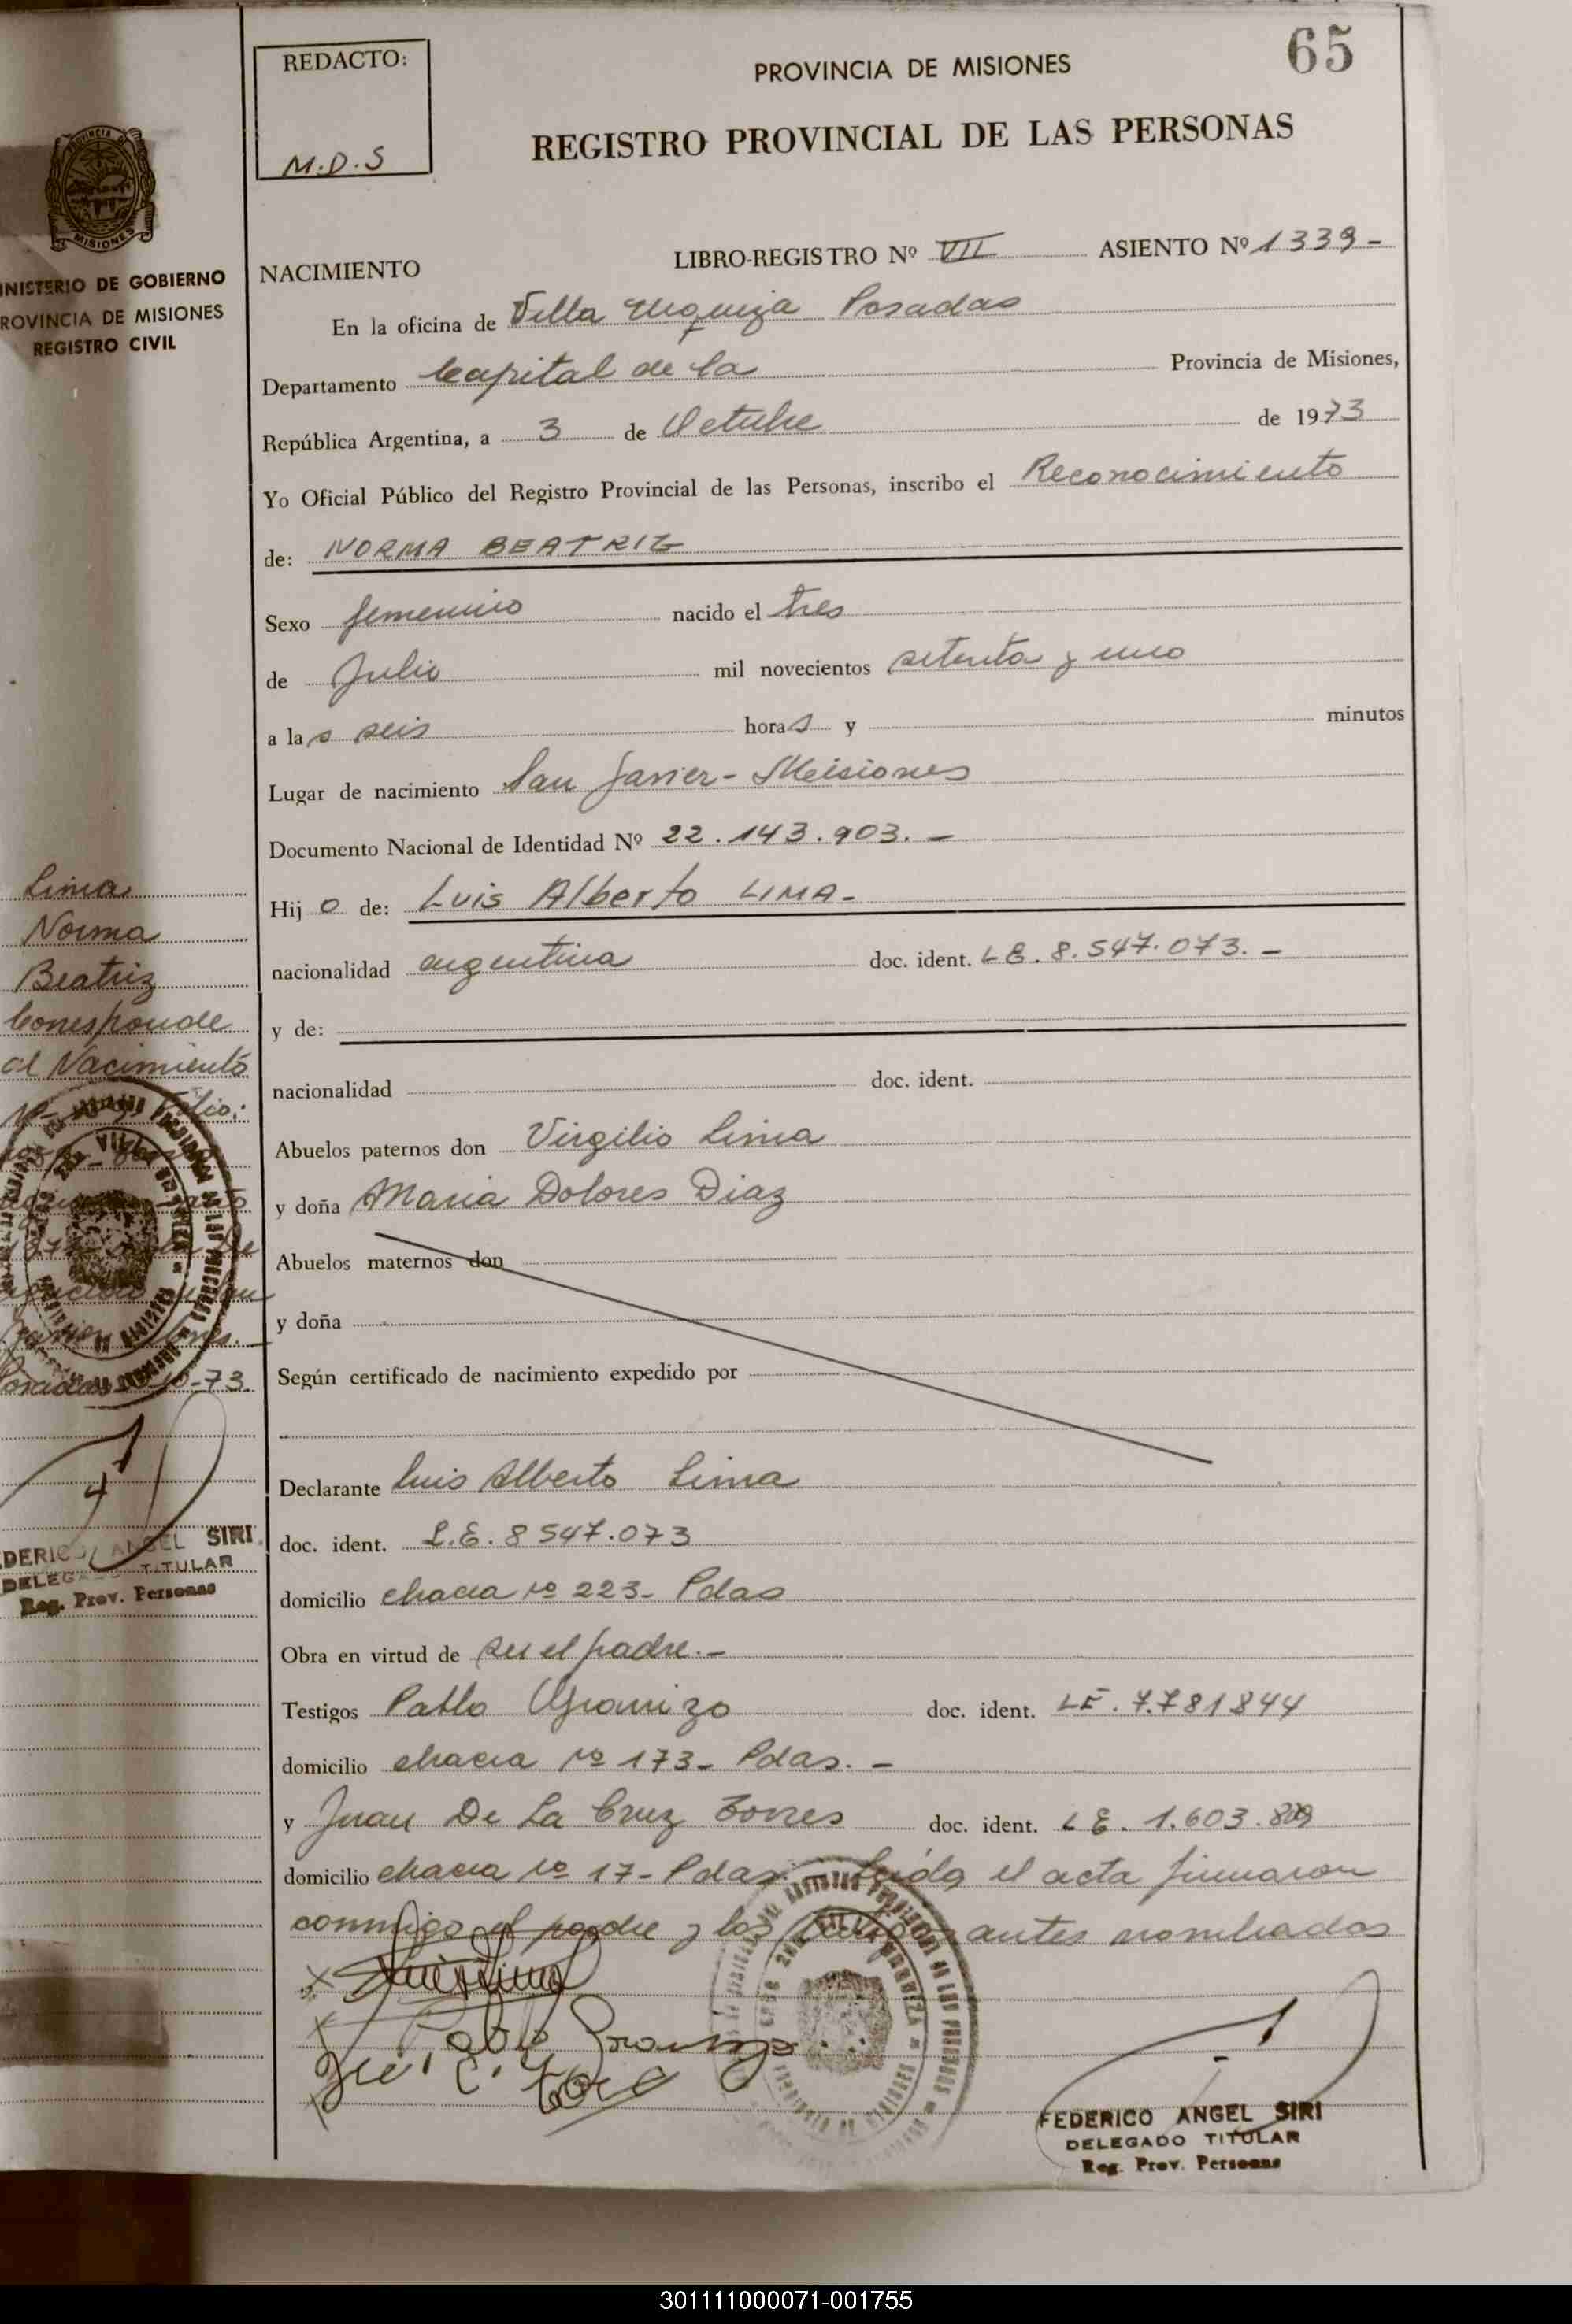 65
REDACTO:
M.D.S
PROVINCIA DE MISIONES
REGISTRO PROVINCIAL DE LAS PERSONAS
MISIONES
NISTERIO DE GOBIERNO
ROVINCIA DE MISIONES
REGISTRO CIVIL
NACIMIENTO LIBRO-REGISTRO Nº VII ASIENTO Nº 1339-
En la oficina de Villa Urquiza Posadas
Departamento Capital de la Provincia de Misiones,
República Argentina, a 3 de Octubre de 1973
Yo Oficial Público del Registro Provincial de las Personas, inscribo el Reconocimiento
de: NORMA BEATRIZ
Sexo femenino nacido el tres
de Julio mil novecientos setenta y uno
a las seis horas y minutos
Lugar de nacimiento San Javier - Misiones
Documento Nacional de Identidad Nº 22.143.903.-
Hijo de: Luis Alberto LIMA-
nacionalidad argentina doc. ident. LE. 8.547.073.-
y de:
nacionalidad doc. ident.
Abuelos paternos don Virgilio Lima
y doña Maria Dolores Diaz
Abuelos maternos don
y doña
Según certificado de nacimiento expedido por
Declarante Luis Alberto Lima
doc. ident. L.E. 8547.073
domicilio chacra nº 223- Pdas
Obra en virtud de ser el padre.-
Testigos Pablo Granizo doc. ident. LE. 7.781844
domicilio chacra nº 173- Pdas.-
y Juan De La Cruz Torres doc. ident. LE. 1.603.
domicilio chacra nº 17- Pdas. Leida el acta firmaron
conmigo el padre y los testigos antes nombrados
Lima
Norma
Beatriz
Corresponde
al Nacimiento
Folio:
Posadas 10-73.
SIRI
TITULAR
Reg. Prov. Personas
FEDERICO ANGEL SIRI
DELEGADO TITULAR
Reg. Prov. Personas
301111000071-001755